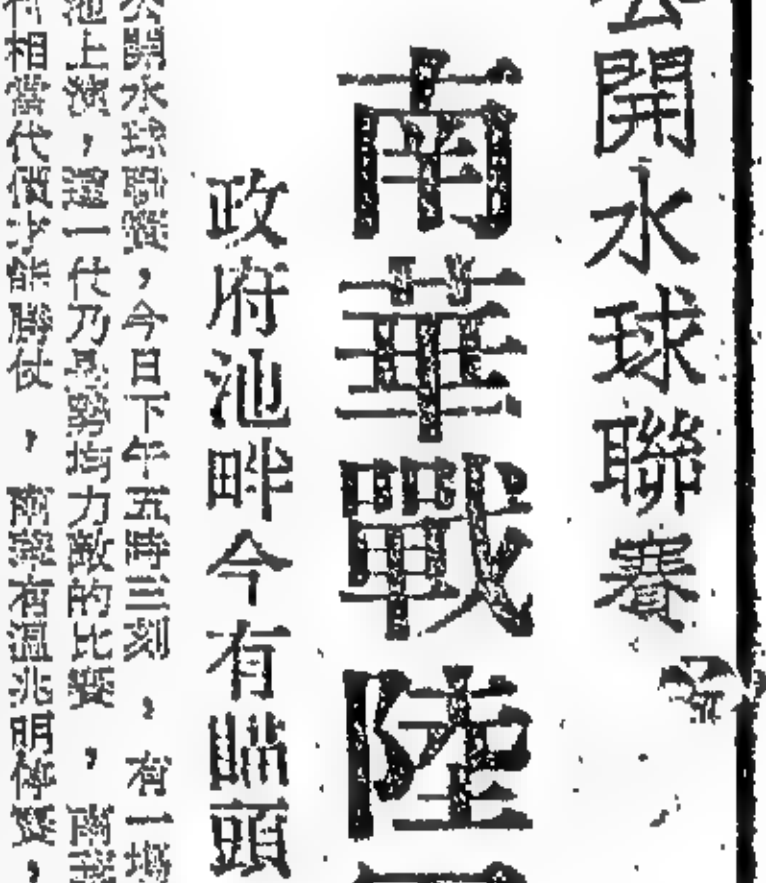 公開水球聯賽
南華戰陸
政府池畔今有睇頭
公開水球聯賽,今日下午五時三刻,有一場
池上演,這一代乃是勢均力敵的比賽,南華
相當代價才能勝仗,南華有溫兆明停賽,